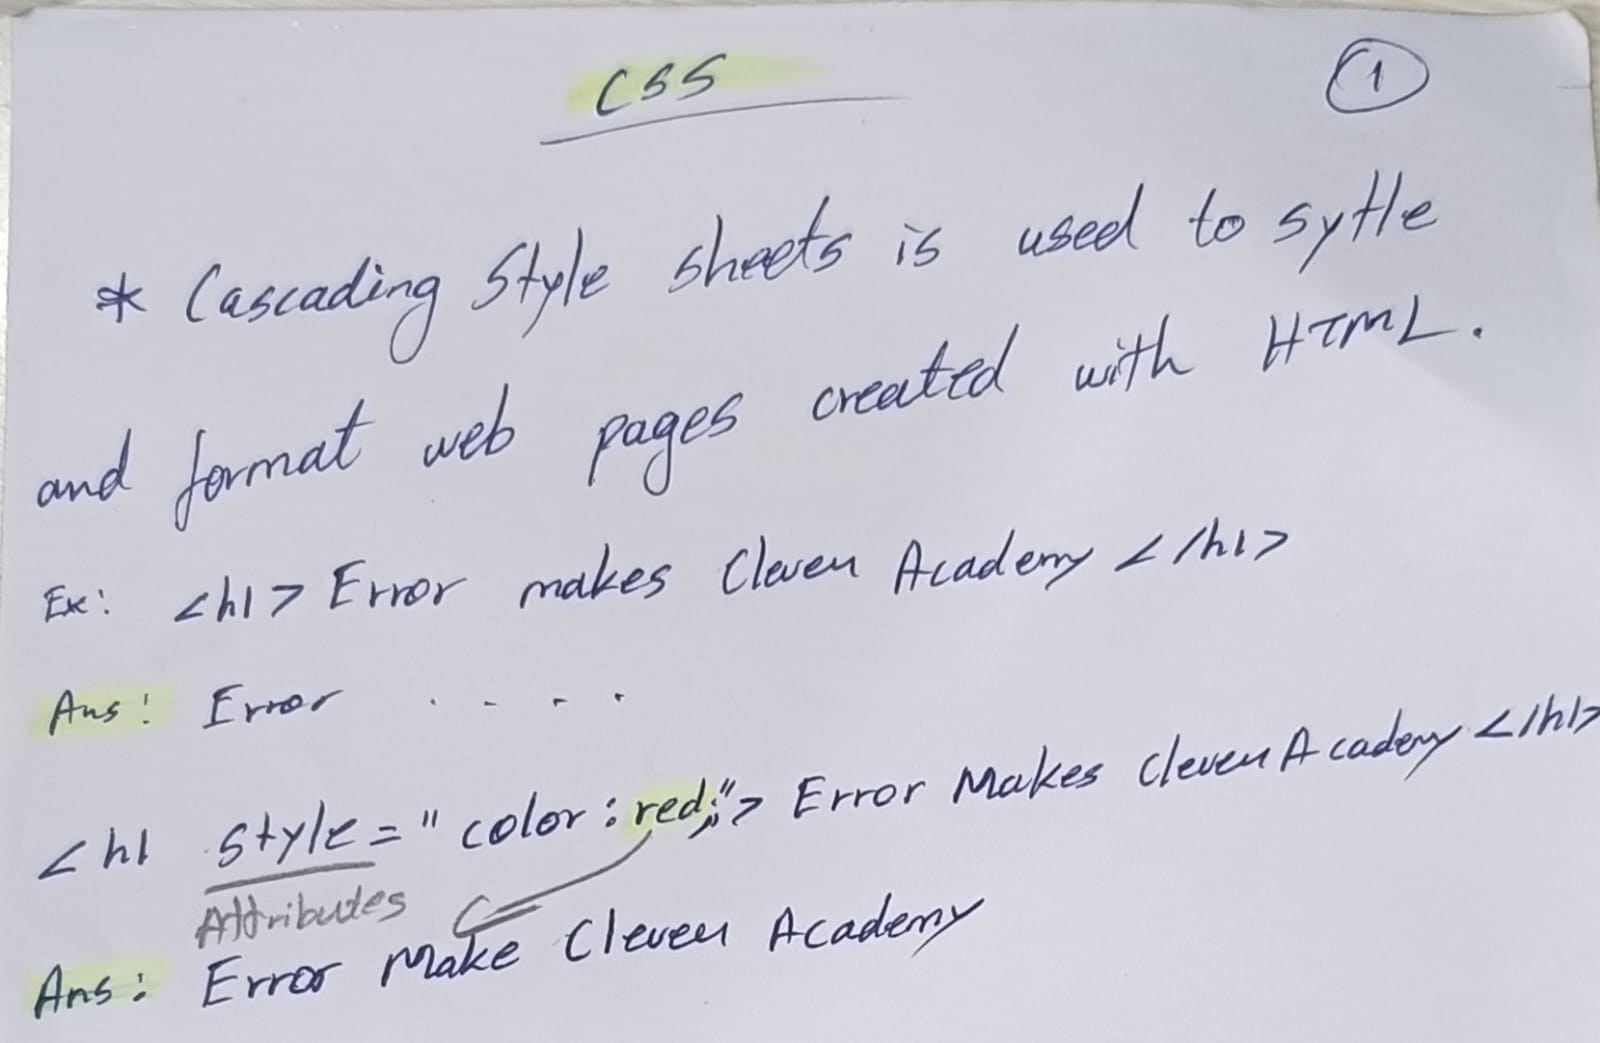 CSS
1
* Cascading Style sheets is used to sytle
and format web pages created with HTML.
Ex: <h1> Error makes Cleven Academy </h1>
Ans: Error . - . .
<h1 style=" color : red;"> Error Makes Cleven Academy </h1>
Attributes
Ans: Error Make Cleven Academy